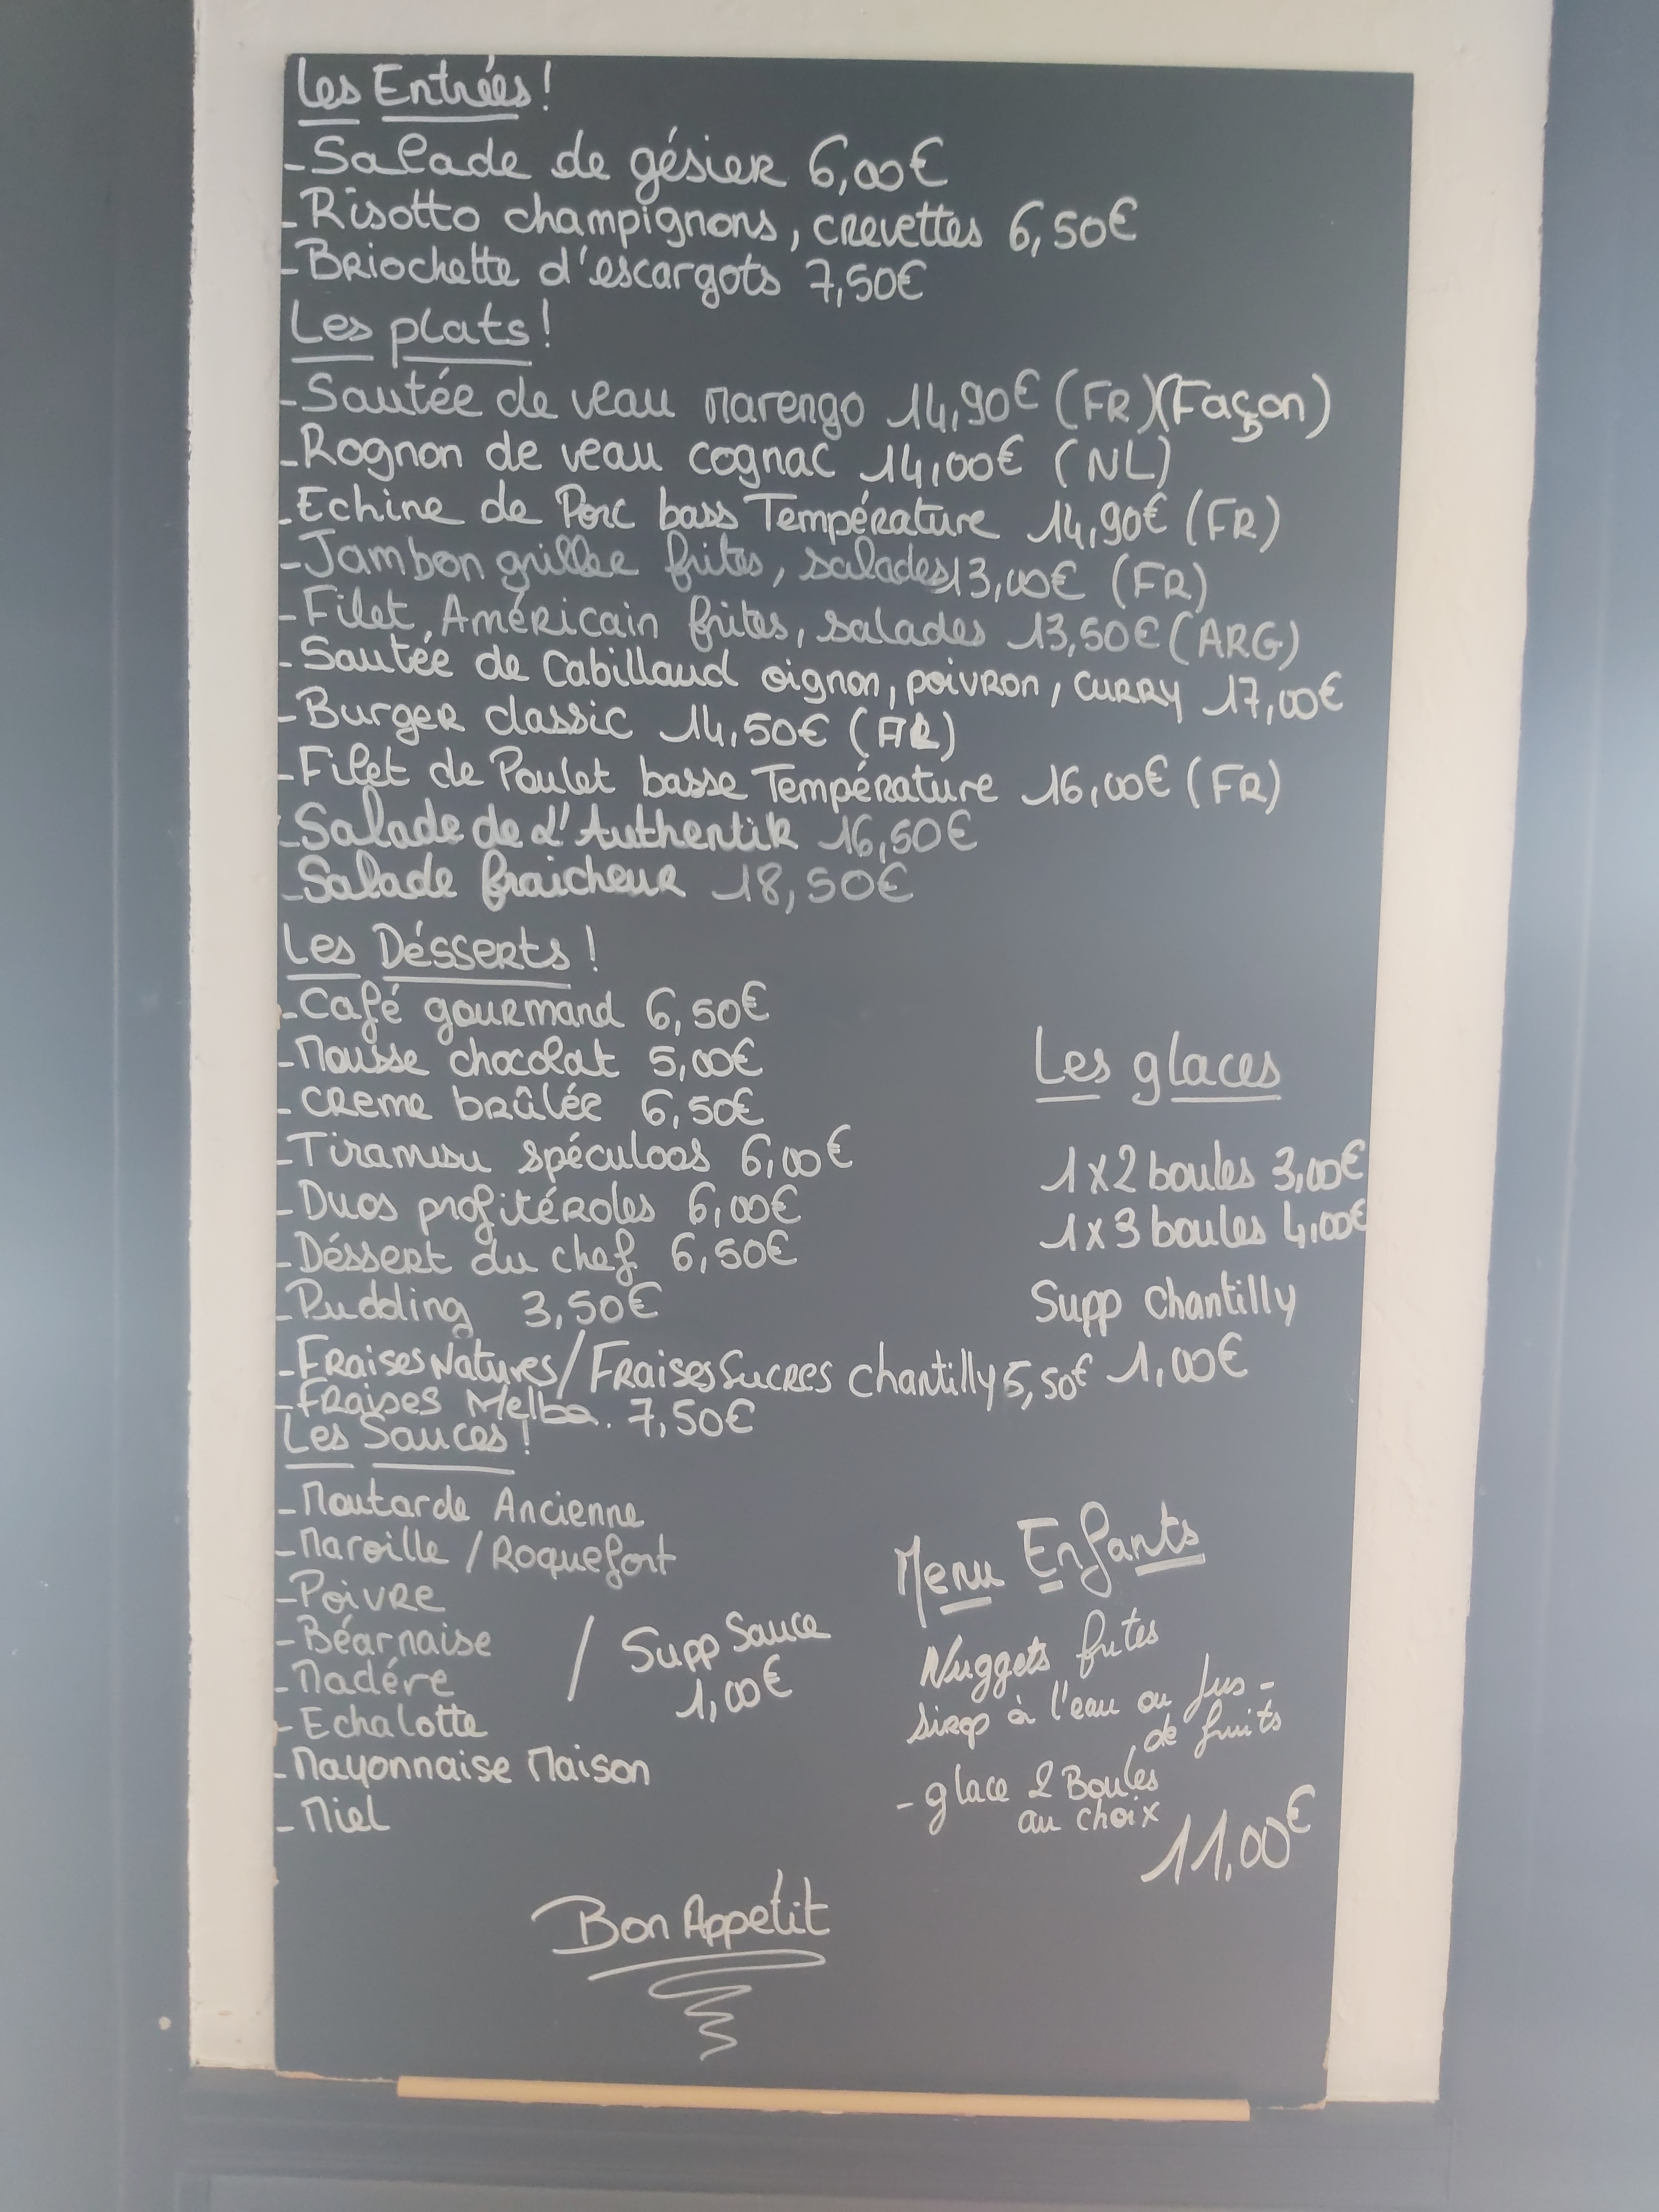 Les Entrées !
- Salade de gésier 6,00€
- Risotto champignons, crevettes 6,50€
- Briochette d'escargots 7,50€
Les plats !
- Sautée de veau Marengo 14,90€ (FR) (Façon)
- Rognon de veau cognac 14,00€ (NL)
- Echine de Porc bass Température 14,90€ (FR)
- Jambon grillee frites, salades 13,00€ (FR)
- Filet Américain frites, salades 13,50€ (ARG)
- Sautée de Cabillaud oignon, poivron, curry 17,00€
- Burger classic 14,50€
- Filet de Poulet basse Température 16,00€ (FR)
- Salade de L'Authentik 16,50€
- Salade fraicheur 18,50€
Les Désserts !
- Café gourmand 6,50€
- Mousse chocolat 5,00€
- Creme brûlée 6,50€
- Tiramisu spéculoos 6,00€
- Duos profitéroles 6,00€
- Déssert du chef 6,50€
- Pudding 3,50€
- Fraises Natures / Fraises Sucres Chantilly 5,50€
- Fraises Melba. 7,50€
Les glaces
1 x 2 boules 3,00€
1 x 3 boules 4,00€
Supp Chantilly
1,00€
Les Sauces !
- Moutarde Ancienne
- Maroille / Roquefort
- Poivre
- Béarnaise
- Madére
- Echalotte
- Mayonnaise Maison
- Miel
/ Supp Sauce
1,00€
Menu Enfants
Nuggets frites
Sirop à l'eau ou Jus -
de fruits
- glace 2 Boules
au choix
11,00€
Bon Appetit